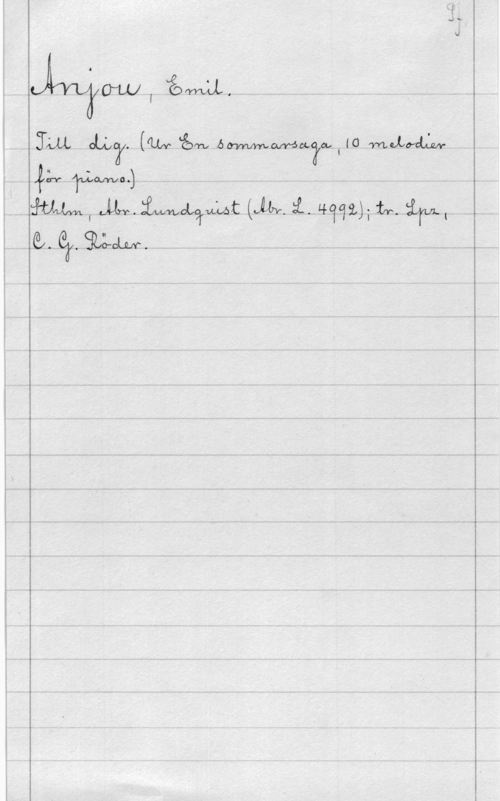 Anjou, Emil.
Till dig. (Ur En sommarsaga, 10 melodier
för piano.)
Sthlm, Abr. Lundquist (Abr. L. 4992); tr. Lpz,
C. G. Röder.